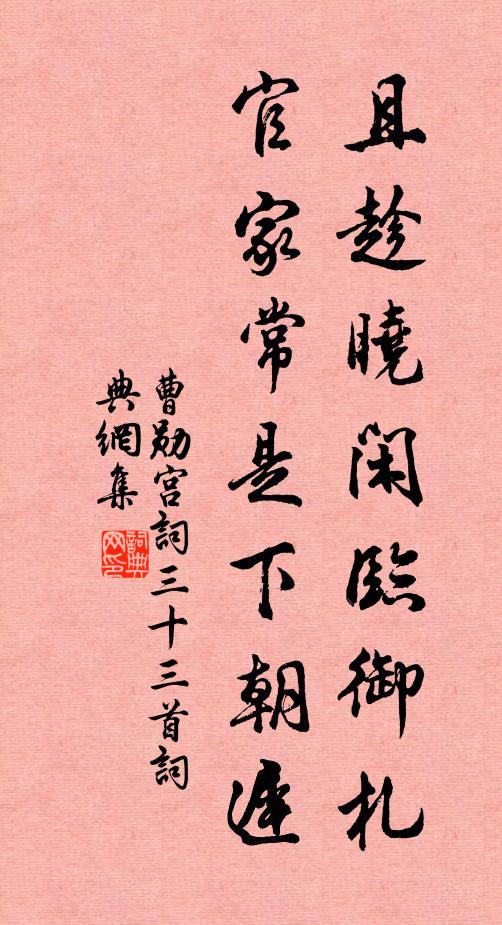 且趁曉閑臨御札
官家常是下朝遲
曹勛宮詞三十三首詞
典網集
詞典网印